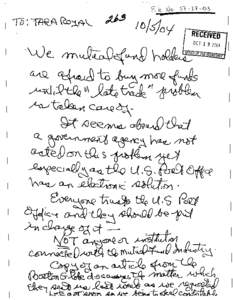 File No. S7-27-03
TO: TARA ROYAL 263 10/5/04
RECEIVED
OCT 13 2004
We mutual fund holders
are afraid to buy more funds
until the "late trade" problem
is taken care of.
It seems absurd that
a government agency has not
acted on this problem yet
especially as the U.S. Post Office
has an electronic solution.
Everyone trusts the U.S. Post
Office and they should be put
in charge of it —
NOT anyone or institution
connected with the Mutual Fund Industry.
Copy of an article from the
Boston Globe discusses the matter which
they sent us last